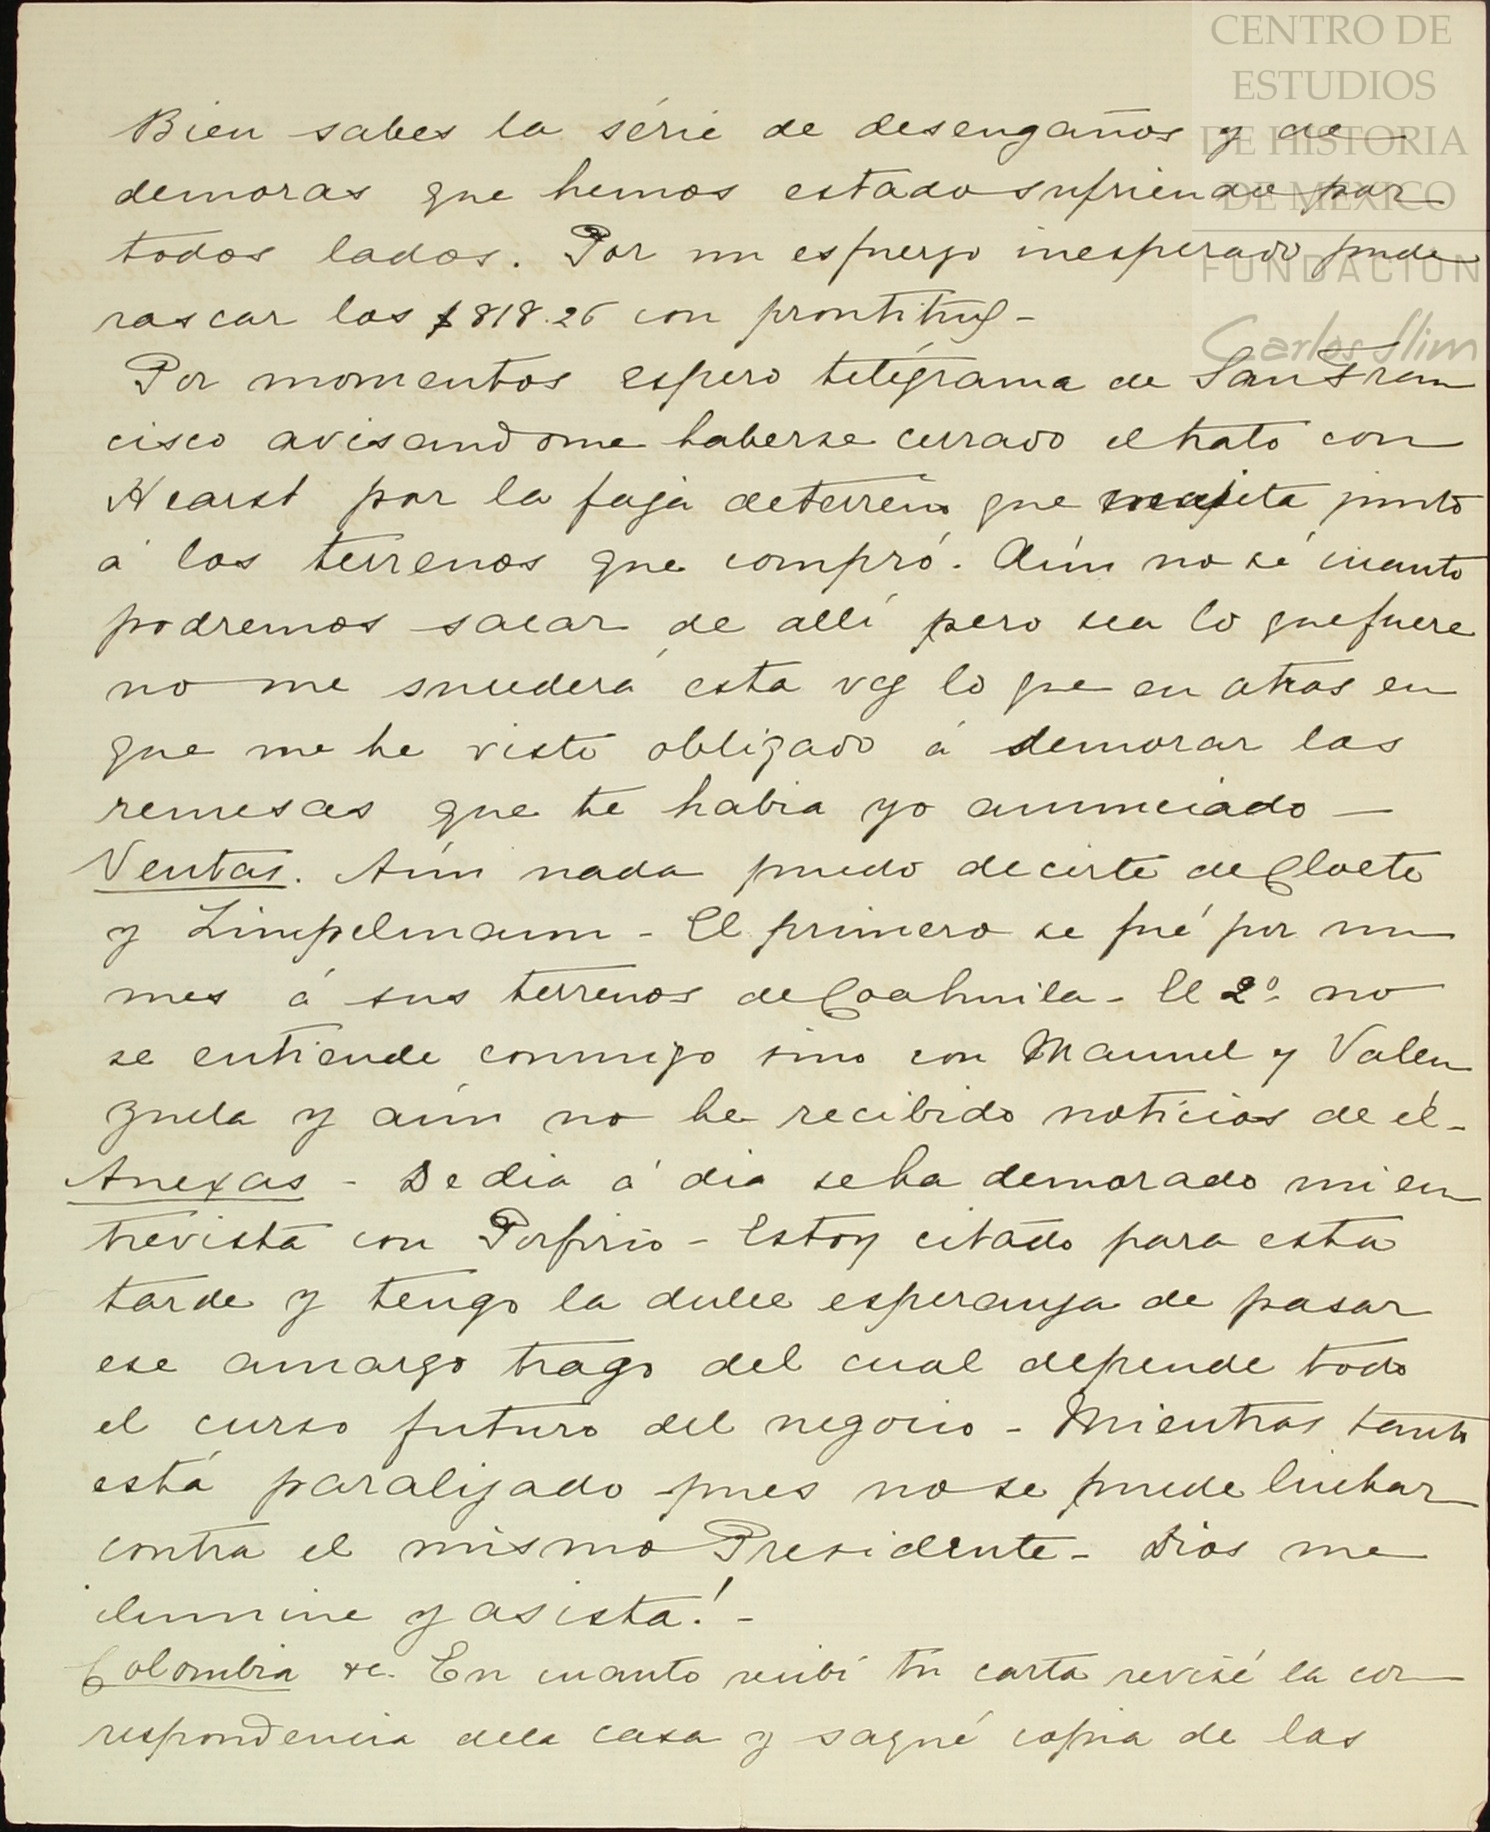 CENTRO DE
ESTUDIOS
DE HISTORIA
DE MEXICO
FUNDACION
Carlos Slim
Bien sabes la série de desengaños y de
demoras que hemos estado sufriendo por
todos lados. Por un esfuerzo inesperado pude
rascar los $818.26 con prontitud -
Por momentos espero telégrama de San Fran
cisco avisandome haberse cerrado el trato con
Hearst por la faja de terreno que junto
á los terrenos que compró. Aún no sé cuanto
podremos sacar de allí pero sea lo que fuere
no me sucederá esta vez lo que en otras en
que me he visto obligado á demorar las
remesas que te habia yo anunciado —
Ventas. Aún nada puedo decirte de Cloete
y Limpelmann - El primero se fué por un
mes á sus terrenos de Coahuila - El 2º no
se entiende conmigo sino con Manuel y Valen
zuela y aún no he recibido noticias de él -
Anexas - De dia á dia se ha demorado mi en
trevista con Porfirio - Estoy citado para esta
tarde y tengo la dulce esperanza de pasar
ese amargo trago del cual depende todo
el curso futuro del negocio - Mientras tanto
está paralizado pues no se puede luchar
contra el mismo Presidente - Dios me
ilumine y asista! -
Colombia &c. En cuanto recibí tu carta revisé la cor
respondencia de la casa y saqué copia de las